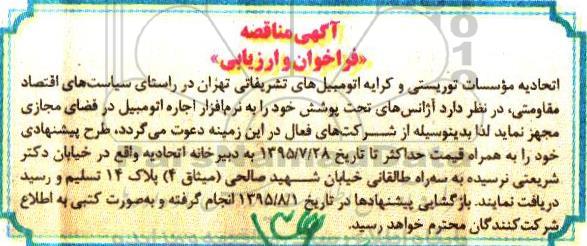 آگهی مناقصه
«فراخوان و ارزیابی»
اتحادیه مؤسسات توریستی و کرایه اتومبیل‌های تشریفاتی تهران در راستای سیاست‌های اقتصاد
مقاومتی، در نظر دارد آژانس‌های تحت پوشش خود را به نرم‌افزار اجاره اتومبیل در فضای مجازی
مجهز نماید لذا بدینوسیله از شرکت‌های فعال در این زمینه دعوت می‌گردد، طرح پیشنهادی
خود را به همراه قیمت حداکثر تا تاریخ ۱۳۹۵/۷/۲۸ به دبیرخانه اتحادیه واقع در خیابان دکتر
شریعتی نرسیده به سه‌راه طالقانی خیابان شهید صالحی (میثاق ۴) پلاک ۱۴ تسلیم و رسید
دریافت نمایند. بازگشایی پیشنهادها در تاریخ ۱۳۹۵/۸/۱ انجام گرفته و به‌صورت کتبی به اطلاع
شرکت‌کنندگان محترم خواهد رسید.